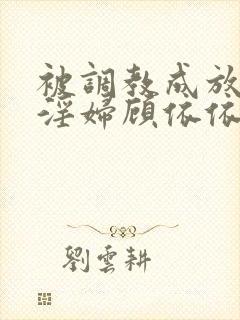 被調教成放
淫婦顾依依
劉雲耕